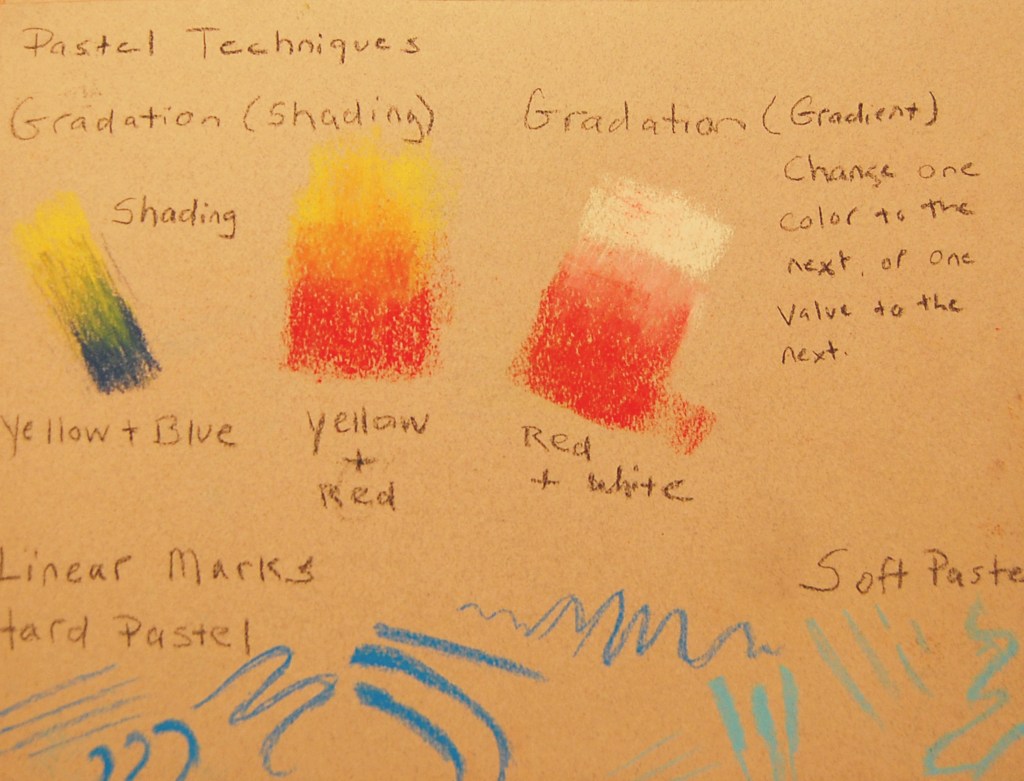 Pastel Techniques
Gradation (Shading)
Shading
Yellow + Blue
Yellow
+
Red
Gradation (Gradient)
Change one
color to the
next, or one
value to the
next.
Red
+ white
Linear Marks
Hard Pastel
Soft Paste